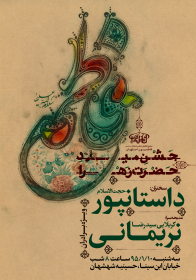 جشن میلاد
حضرت زهرا
سخنران
حجت الاسلام
داستانپور
کربلایی سیدرضا
نریمانی
سه شنبه ۹۵/۱/۱۰ ساعت ۸ شب
خیابان ابن سینا، حسینیه شهشهان